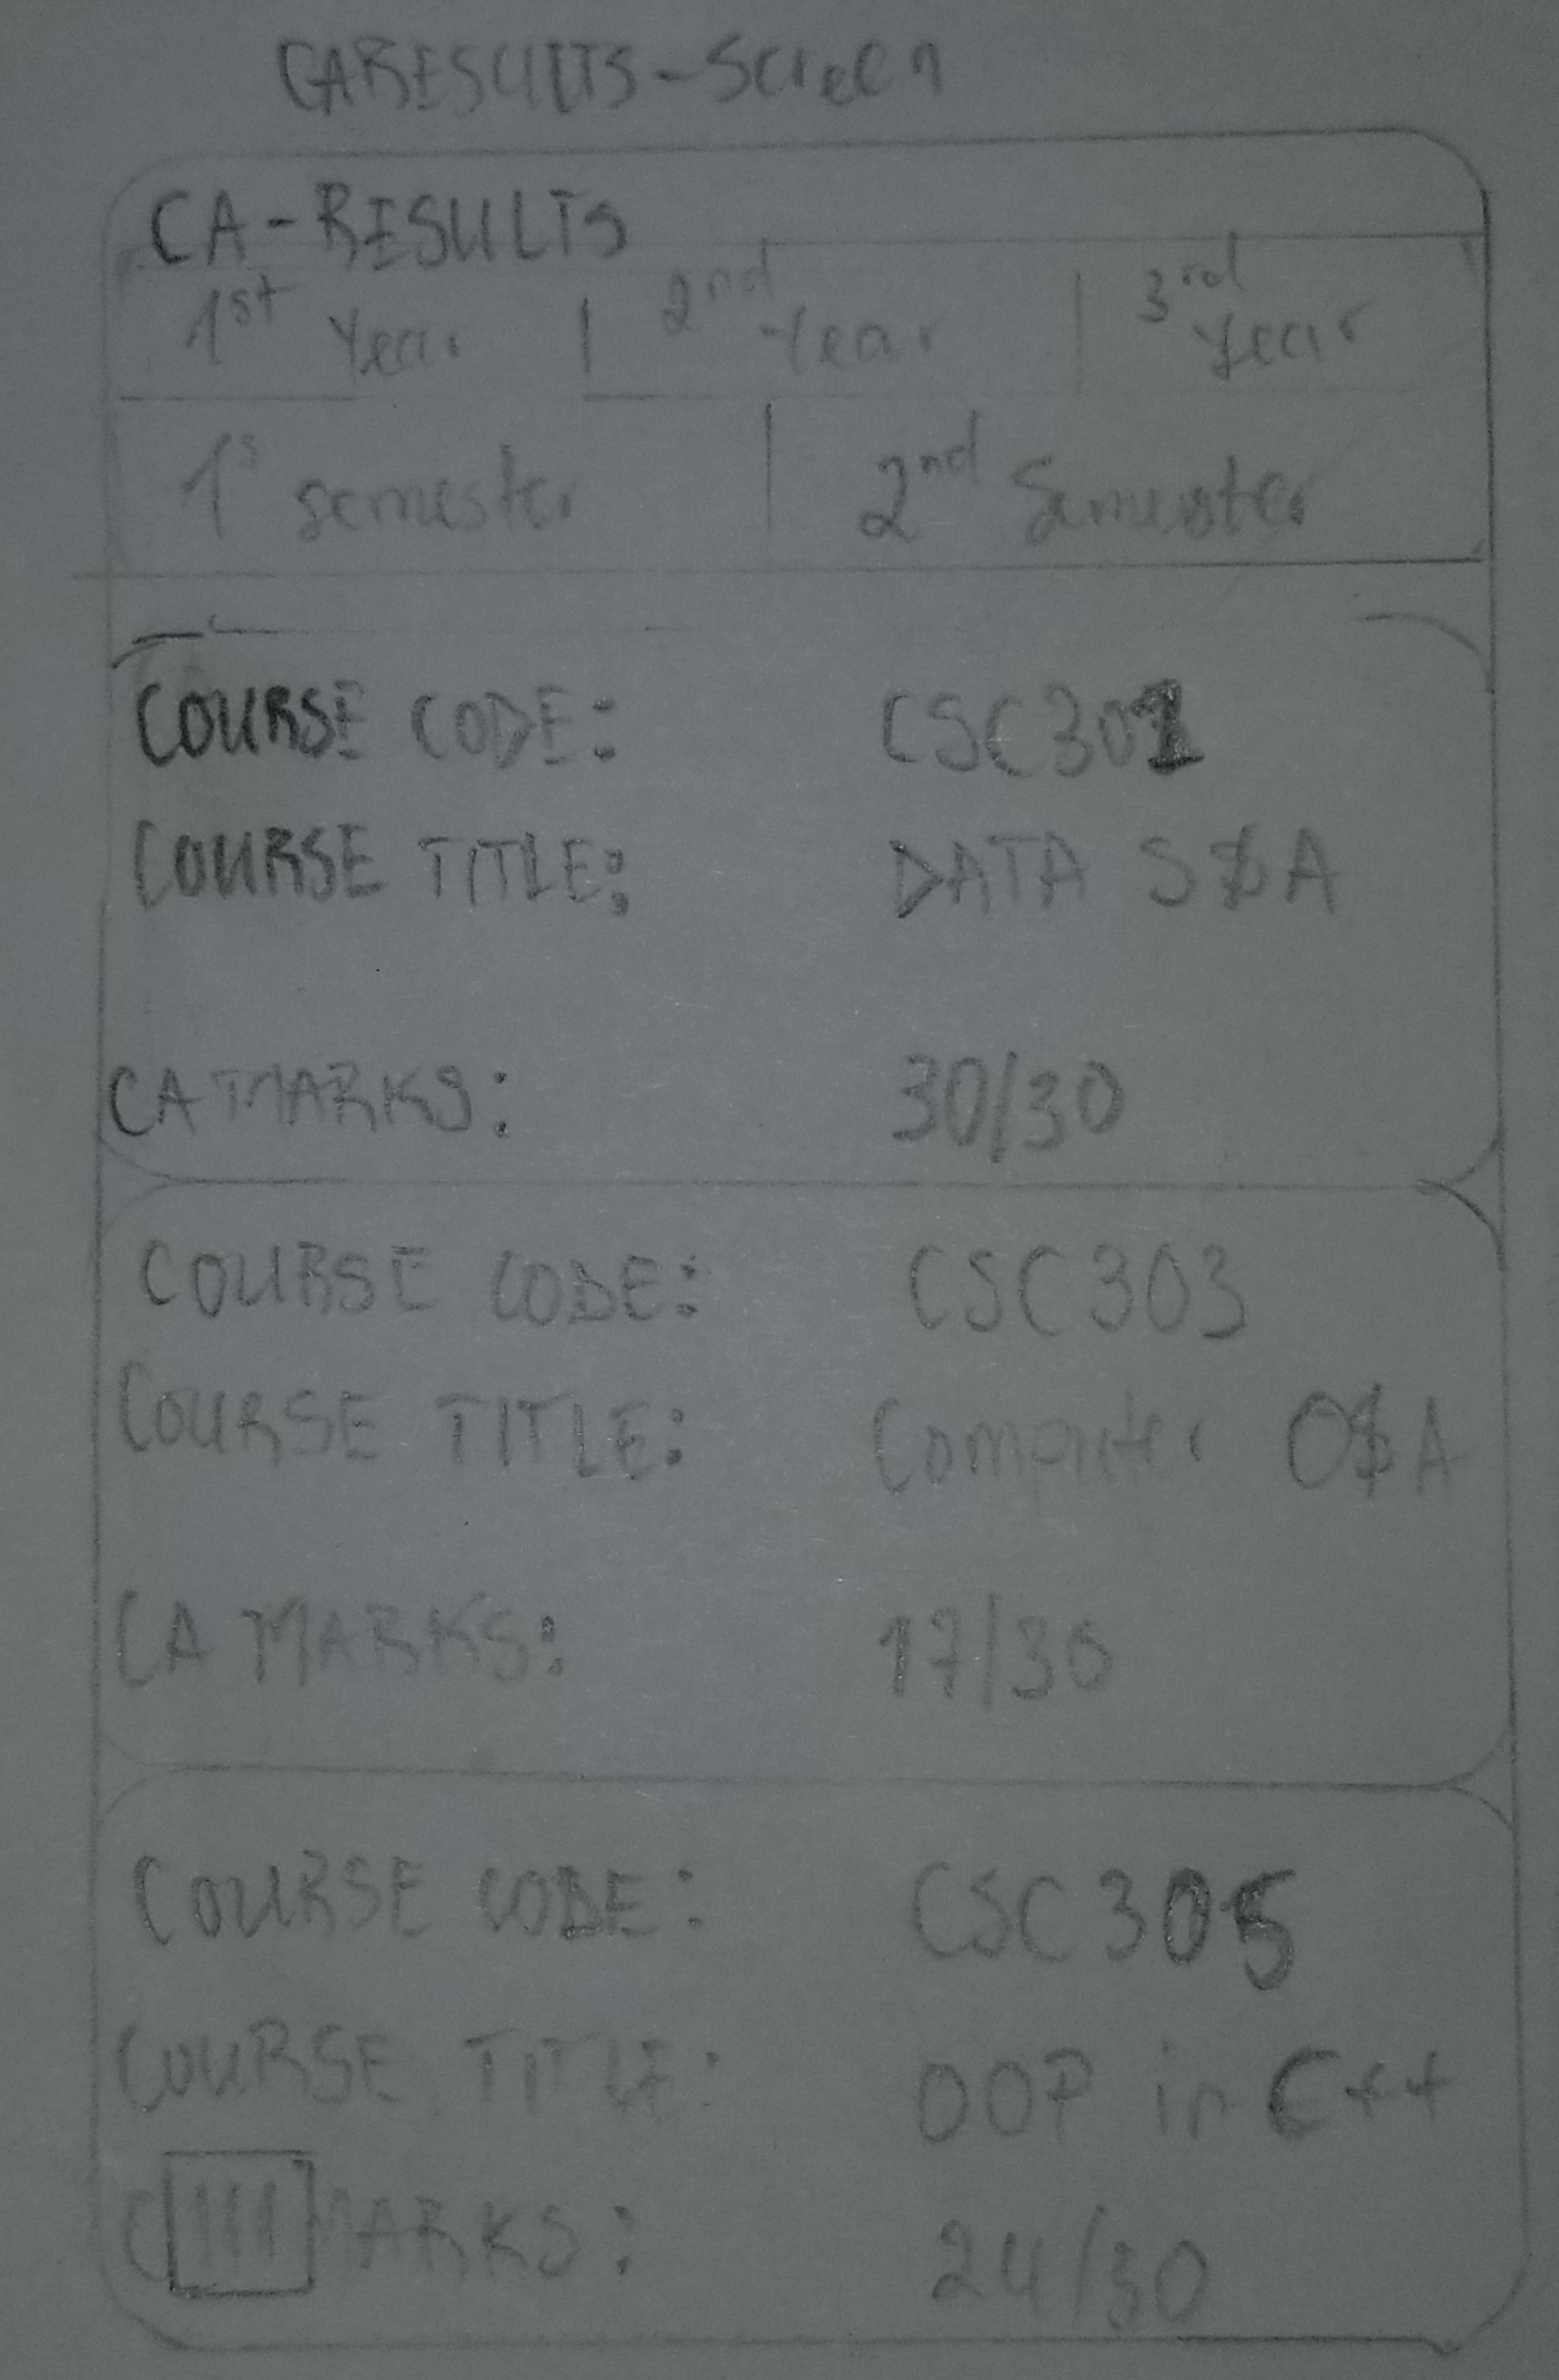 CARESULTS-Screen
CA-RESULTS
1st Year | 2nd Year | 3rd Year
1s semester | 2nd Semester
COURSE CODE: CSC301
COURSE TITLE: DATA S&A
CA MARKS: 30/30
COURSE CODE: CSC303
COURSE TITLE: Computer O&A
CA MARKS: 17/30
COURSE CODE: CSC305
COURSE TITLE: OOP in C++
C MARKS: 24/30